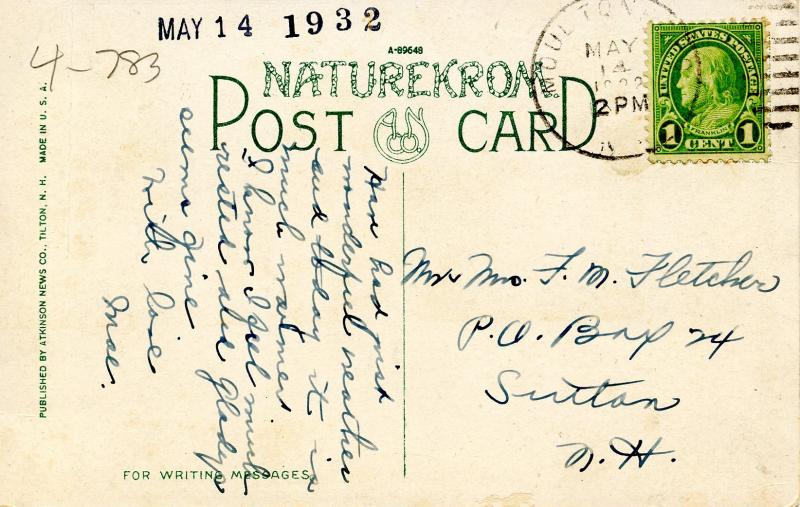 MAY 14 1932
4-783
A-89648
NATUREKROM
POST CARD
A.N. CO.
MOULTO
MAY
14
2 PM
UNITED STATES POSTAGE
FRANKLIN
1 CENT 1
PUBLISHED BY ATKINSON NEWS CO., TILTON, N. H. MADE IN U. S. A.
Have had just
wonderful weather
and today it is
much warmer
I know I feel much
rested also Gladys
seems fine
With love
Mae.
Mr & Mrs. F. M. Fletcher
P.O. Box 24
Sutton
N.H.
FOR WRITING MESSAGES